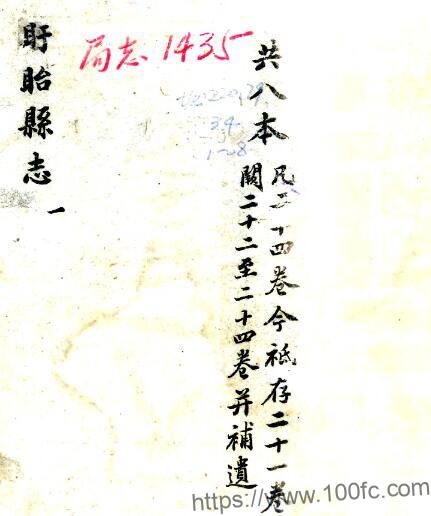 共八本
凡二十四卷今祗存二十一卷
闕二十二至二十四卷并補遺
局志1435
34
1-8
盱眙縣志 一
https://www.100fc.com